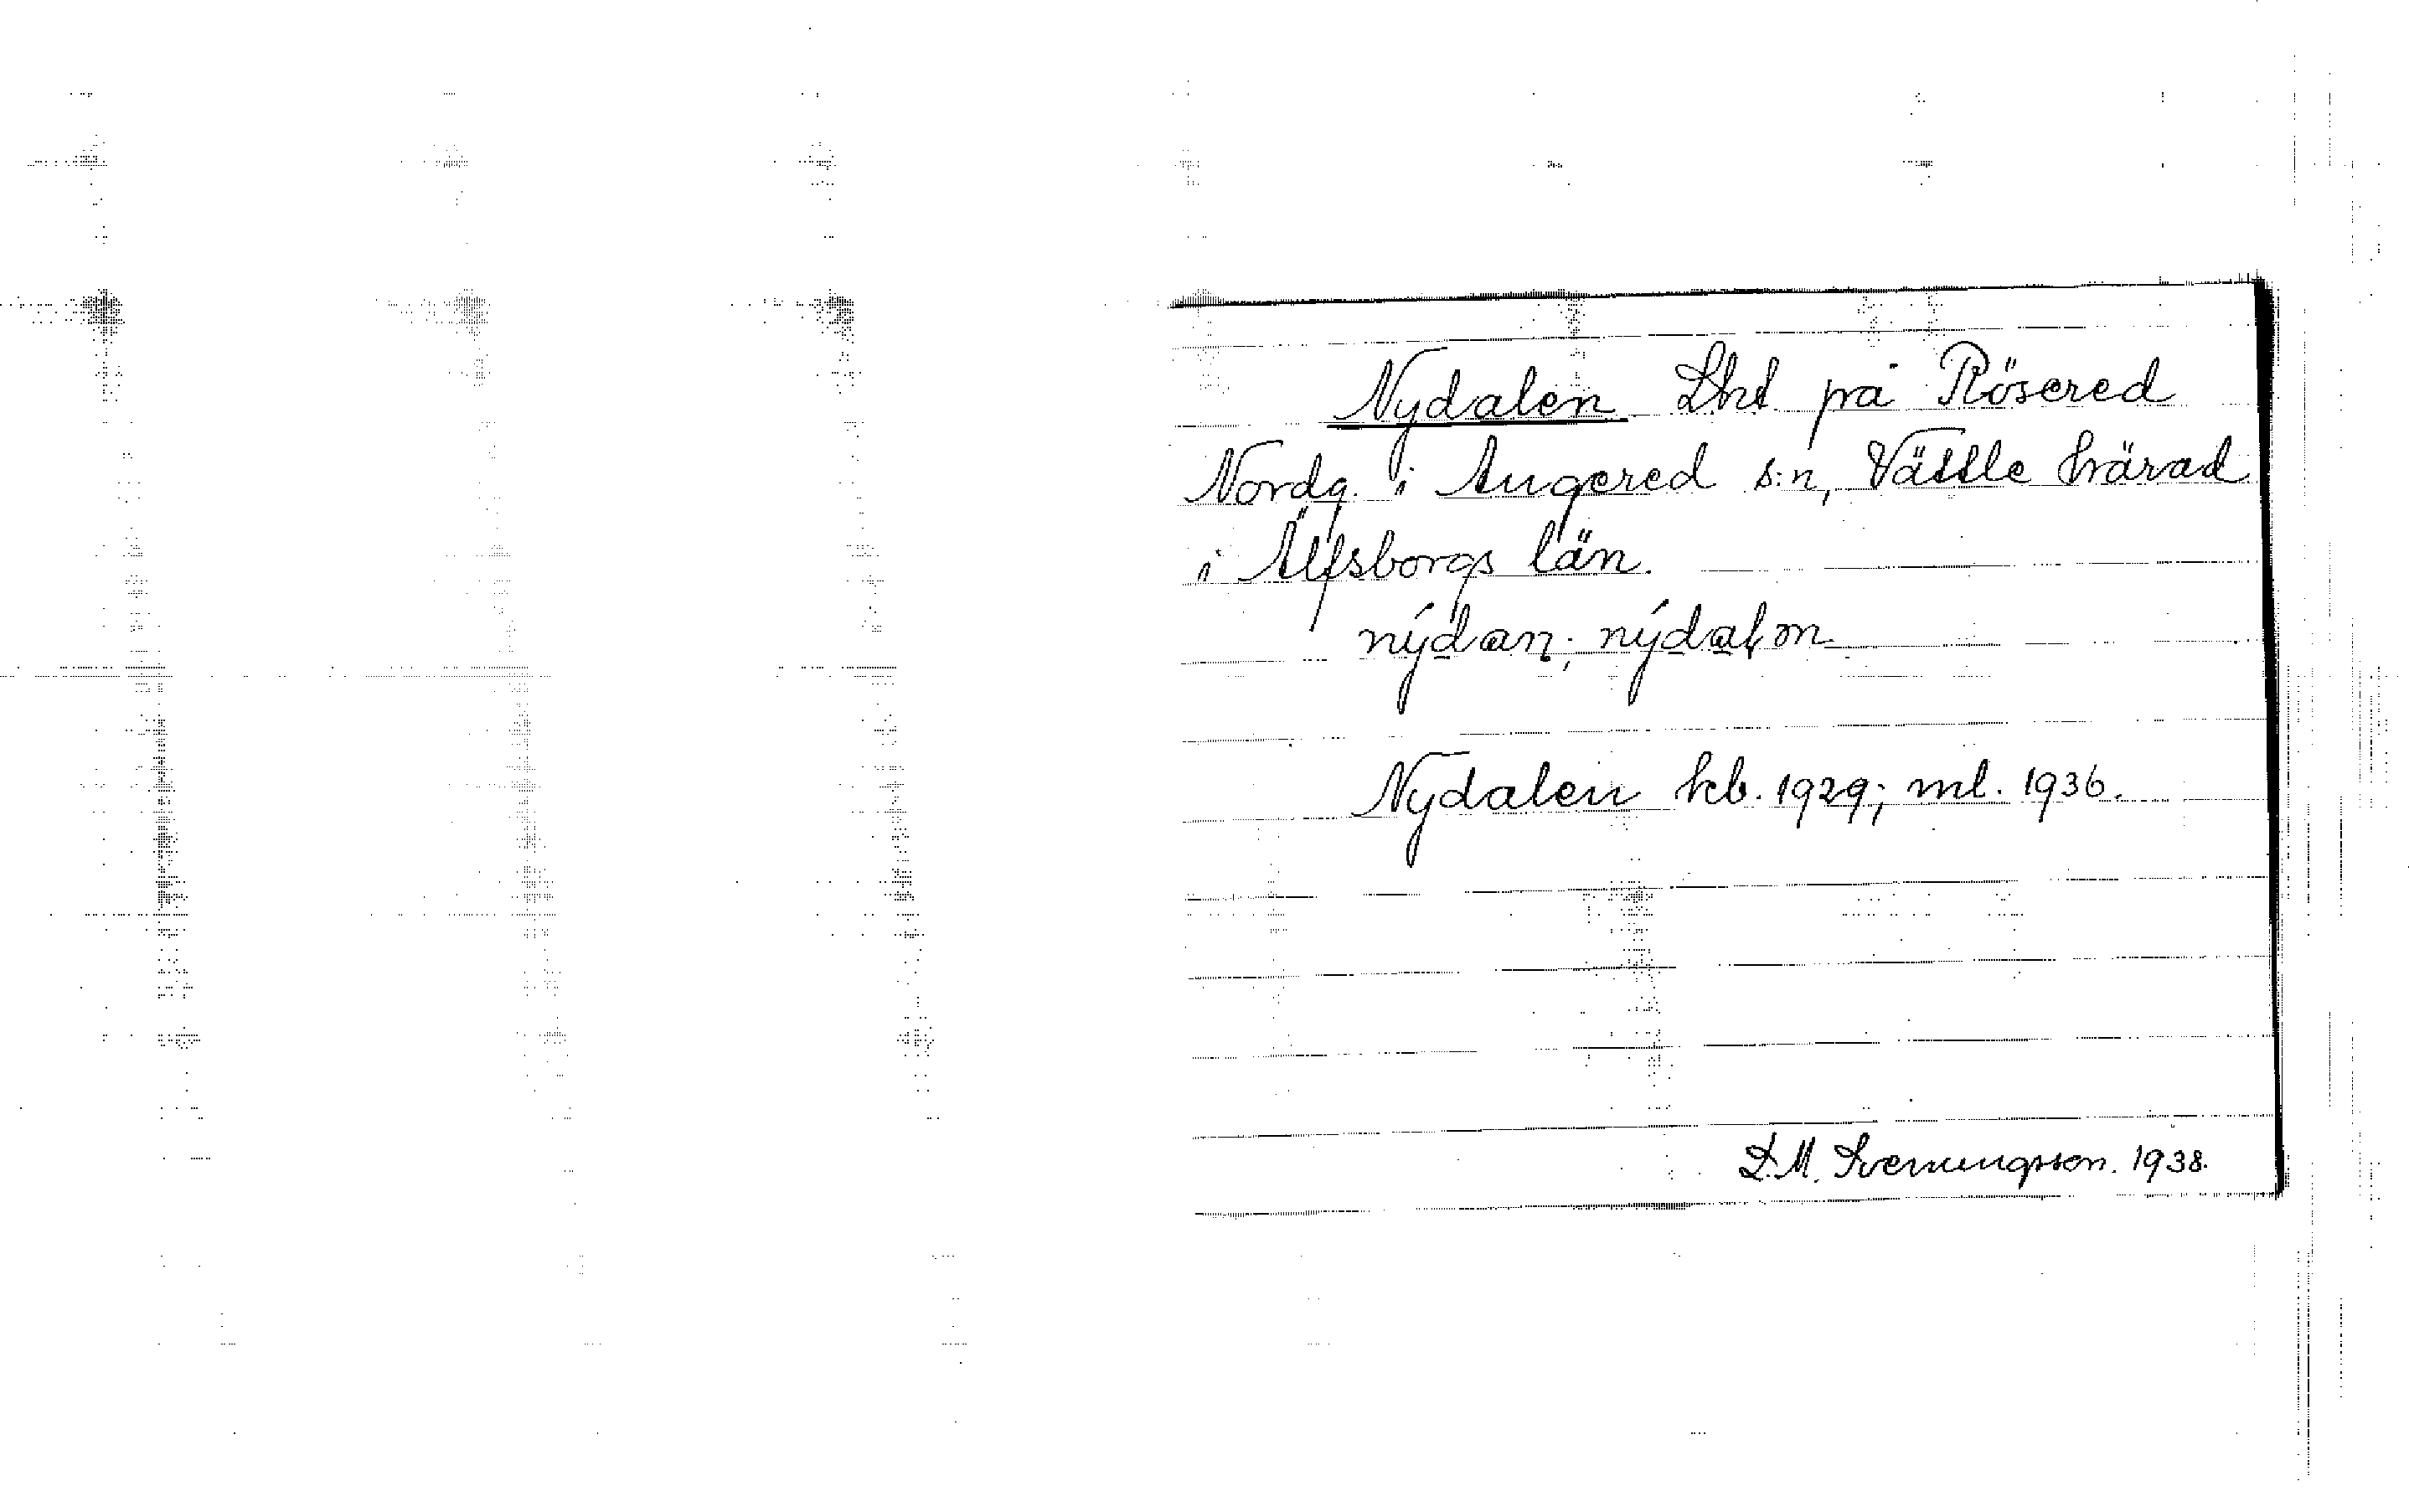 Nydalen Lht på Rösered
Nordg. i Angered s:n, Vättle härad
i Älfsborgs län.
nýdan; nýdalon
Nydalen kb. 1929; ml. 1936.
D.M. Svenungsson. 1938.